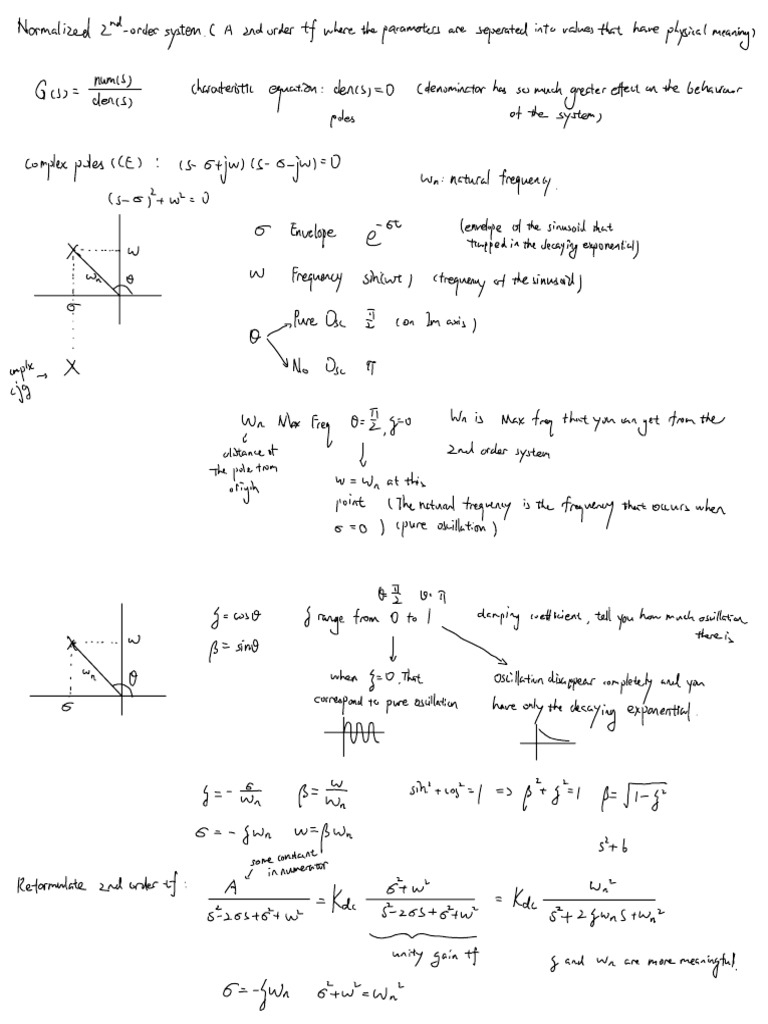 Normalized 2nd-order system. ( A 2nd order tf where the parameters are seperated into values that have physical meaning)
G(s) = num(s)/den(s)    characteristic equation: den(s)=0    (denominator has so much greater effect on the behaviour of the system)
poles
complex poles (CE) : (s-σ+jω)(s-σ-jω)=0
(s-σ)²+ω²=0
ωn: natural frequency.
X    ω
ωn    θ
σ
X
σ Envelope e^-σt (envelope of the sinusoid that
trapped in the decaying exponential)
ω Frequency sin(ωt) (frequency of the sinusoid)
θ
Pure Osc π/2 (on Im axis)
No Osc π
ωn Max Freq θ=π/2, ζ=0
distance of
the pole from
origin
ω = ωn at this
point (The natural frequency is the frequency that occurs when
σ=0) (pure oscillation)
ωn is Max freq that you can get from the
2nd order system
X    ω
ωn    θ
σ
ζ = cosθ
β = sinθ
θ=π/2    θ=π
ζ range from 0 to 1
damping coefficient, tell you how much oscillation
there is
when ζ=0. That
correspond to pure oscillation
Oscillation disappear completely and you
have only the decaying exponential.
ζ = -σ/ωn    β = ω/ωn    sin²+cos²=1 => β²+ζ²=1    β=√(1-ζ²)
σ = -ζωn    ω=βωn
s²+b
some constant
in numerator
Reformulate 2nd order tf: A/(s²-2σs+σ²+ω²) = Kdc (σ²+ω²)/(s²-2σs+σ²+ω²) = Kdc ωn²/(s²+2ζωns+ωn²)
unity gain tf
ζ and ωn are more meaningful.
σ=-ζωn    σ²+ω²=ωn²